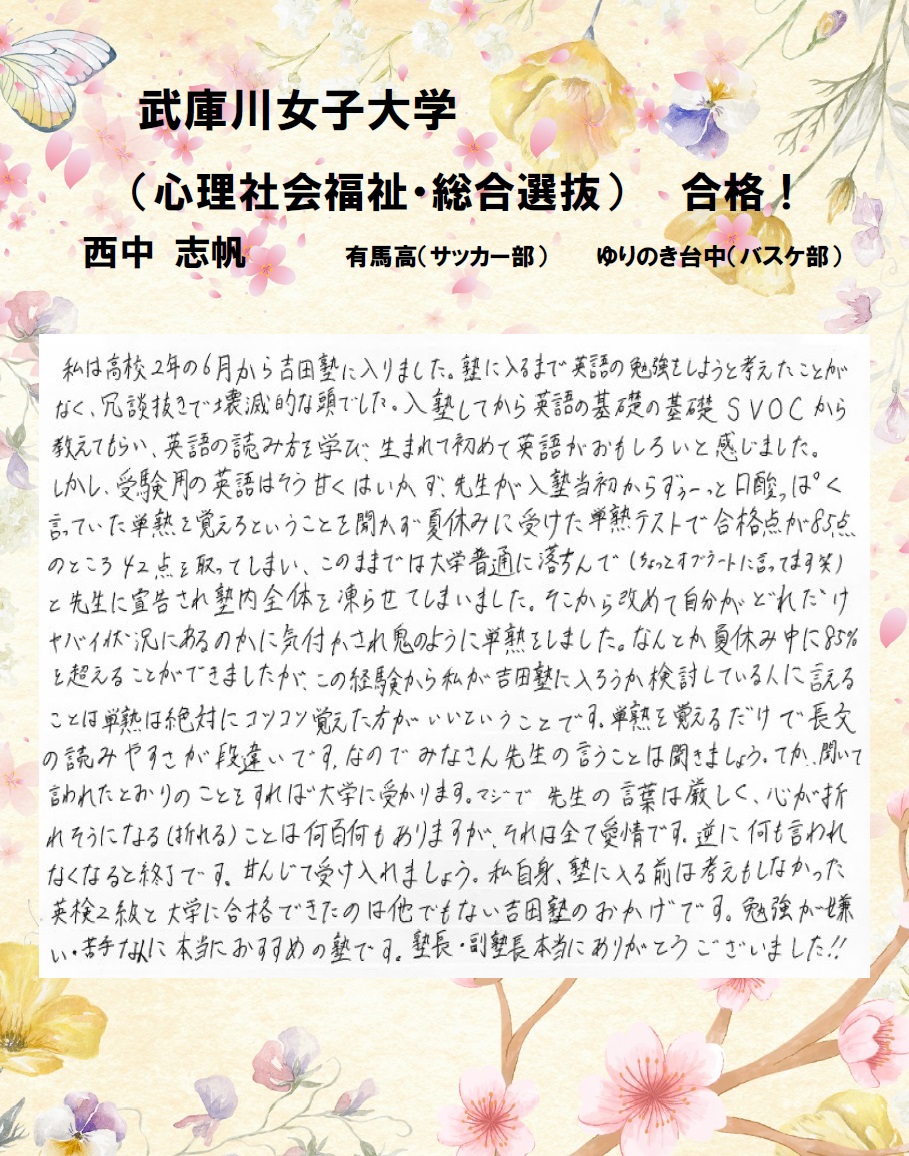 武庫川女子大学
（心理社会福祉・総合選抜）　合格！
西中 志帆　有馬高（サッカー部）　ゆりのき台中（バスケ部）
私は高校2年の6月から吉田塾に入りました。塾に入るまで英語の勉強をしようと考えたことが
なく、冗談抜きで壊滅的な頭でした。入塾してから英語の基礎の基礎SVOCから
教えてもらい、英語の読み方を学び、生まれて初めて英語がおもしろいと感じました。
しかし、受験用の英語はそう甘くはいかず、先生が入塾当初からずぅーっと口酸っぱく
言っていた単熟を覚えろということを聞かず夏休みに受けた単熟テストで合格点が85点
のところ42点を取ってしまい、このままでは大学普通に落ちんで(ちょっとオブラートに言ってます笑)
と先生に宣告され塾内全体を凍らせてしまいました。そこから改めて自分がどれだけ
ヤバイ状況にあるのかに気付かされ鬼のように単熟をしました。なんとか夏休み中に85%
を超えることができましたが、この経験から私が吉田塾に入ろうか検討している人に言える
ことは単熟は絶対にコツコツ覚えた方がいいということです。単熟を覚えるだけで長文
の読みやすさが段違いです。なのでみなさん先生の言うことは聞きましょう。てか、聞いて
言われたとおりのことをすれば大学に受かります。マジで先生の言葉は厳しく、心が折
れそうになる(折れる)ことは何百何もありますが、それは全て愛情です。逆に何も言われ
なくなると終了です。甘んじて受け入れましょう。私自身、塾に入る前は考えもしなかった
英検2級と大学に合格できたのは他でもない吉田塾のおかげです。勉強が嫌
い・苦手な人に本当におすすめの塾です。塾長・副塾長本当にありがとうございました!!